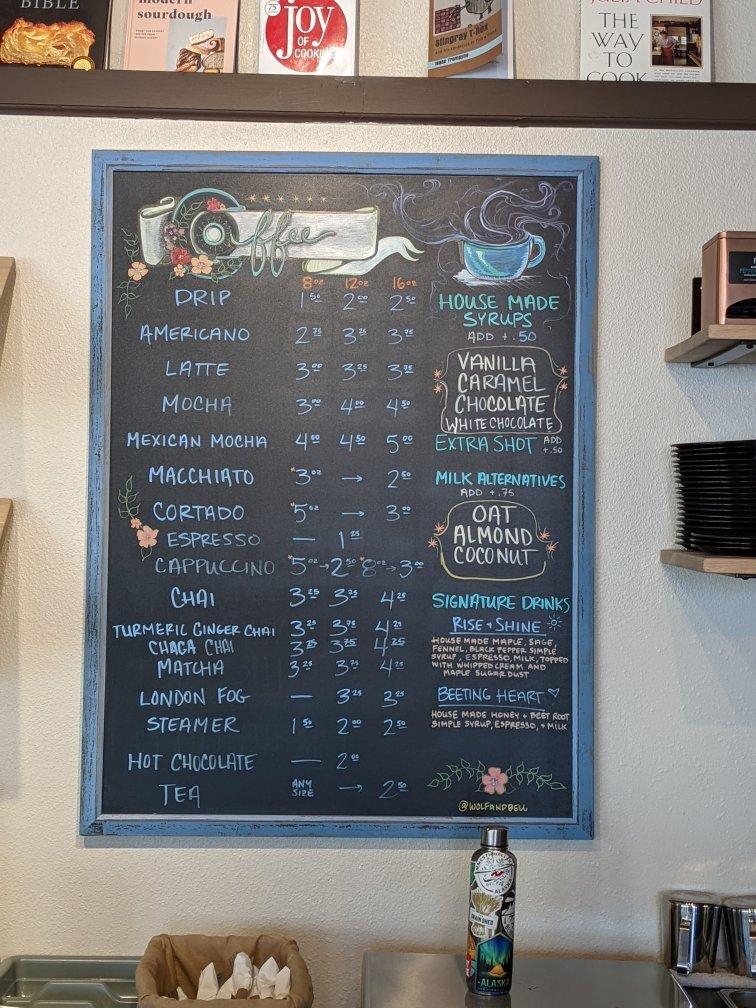 BIBLE
modern
sourdough
75
joy
OF
COOKING
Stingray T-Rex
JULIA CHILD
THE
WAY
TO
COOK
Coffee
8oz 12oz 16oz
DRIP 1.50 2.00 2.50
AMERICANO 2.75 3.25 3.75
LATTE 3.00 3.25 3.75
MOCHA 3.00 4.00 4.50
MEXICAN MOCHA 4.00 4.50 5.00
MACCHIATO *3oz → 2.50
CORTADO *5oz → 3.00
ESPRESSO — 1.25
CAPPUCCINO *5oz → 2.50 *8oz → 3.00
CHAI 3.25 3.75 4.25
TURMERIC GINGER CHAI 3.25 3.75 4.25
CHAGA CHAI 3.25 3.75 4.25
MATCHA 3.25 3.75 4.25
LONDON FOG — 3.25 3.25
STEAMER 1.50 2.00 2.50
HOT CHOCOLATE — 2.00
TEA ANY SIZE → 2.50
HOUSE MADE
SYRUPS
ADD + .50
VANILLA
CARAMEL
CHOCOLATE
WHITE CHOCOLATE
EXTRA SHOT ADD +.50
MILK ALTERNATIVES
ADD + .75
OAT
ALMOND
COCONUT
SIGNATURE DRINKS
RISE + SHINE
HOUSE MADE MAPLE, SAGE,
FENNEL, BLACK PEPPER SIMPLE
SYRUP, ESPRESSO, MILK, TOPPED
WITH WHIPPED CREAM AND
MAPLE SUGAR DUST
BEETING HEART
HOUSE MADE HONEY + BEET ROOT
SIMPLE SYRUP, ESPRESSO, + MILK
@WOLFANDBELL
ALASKA
ALASKA